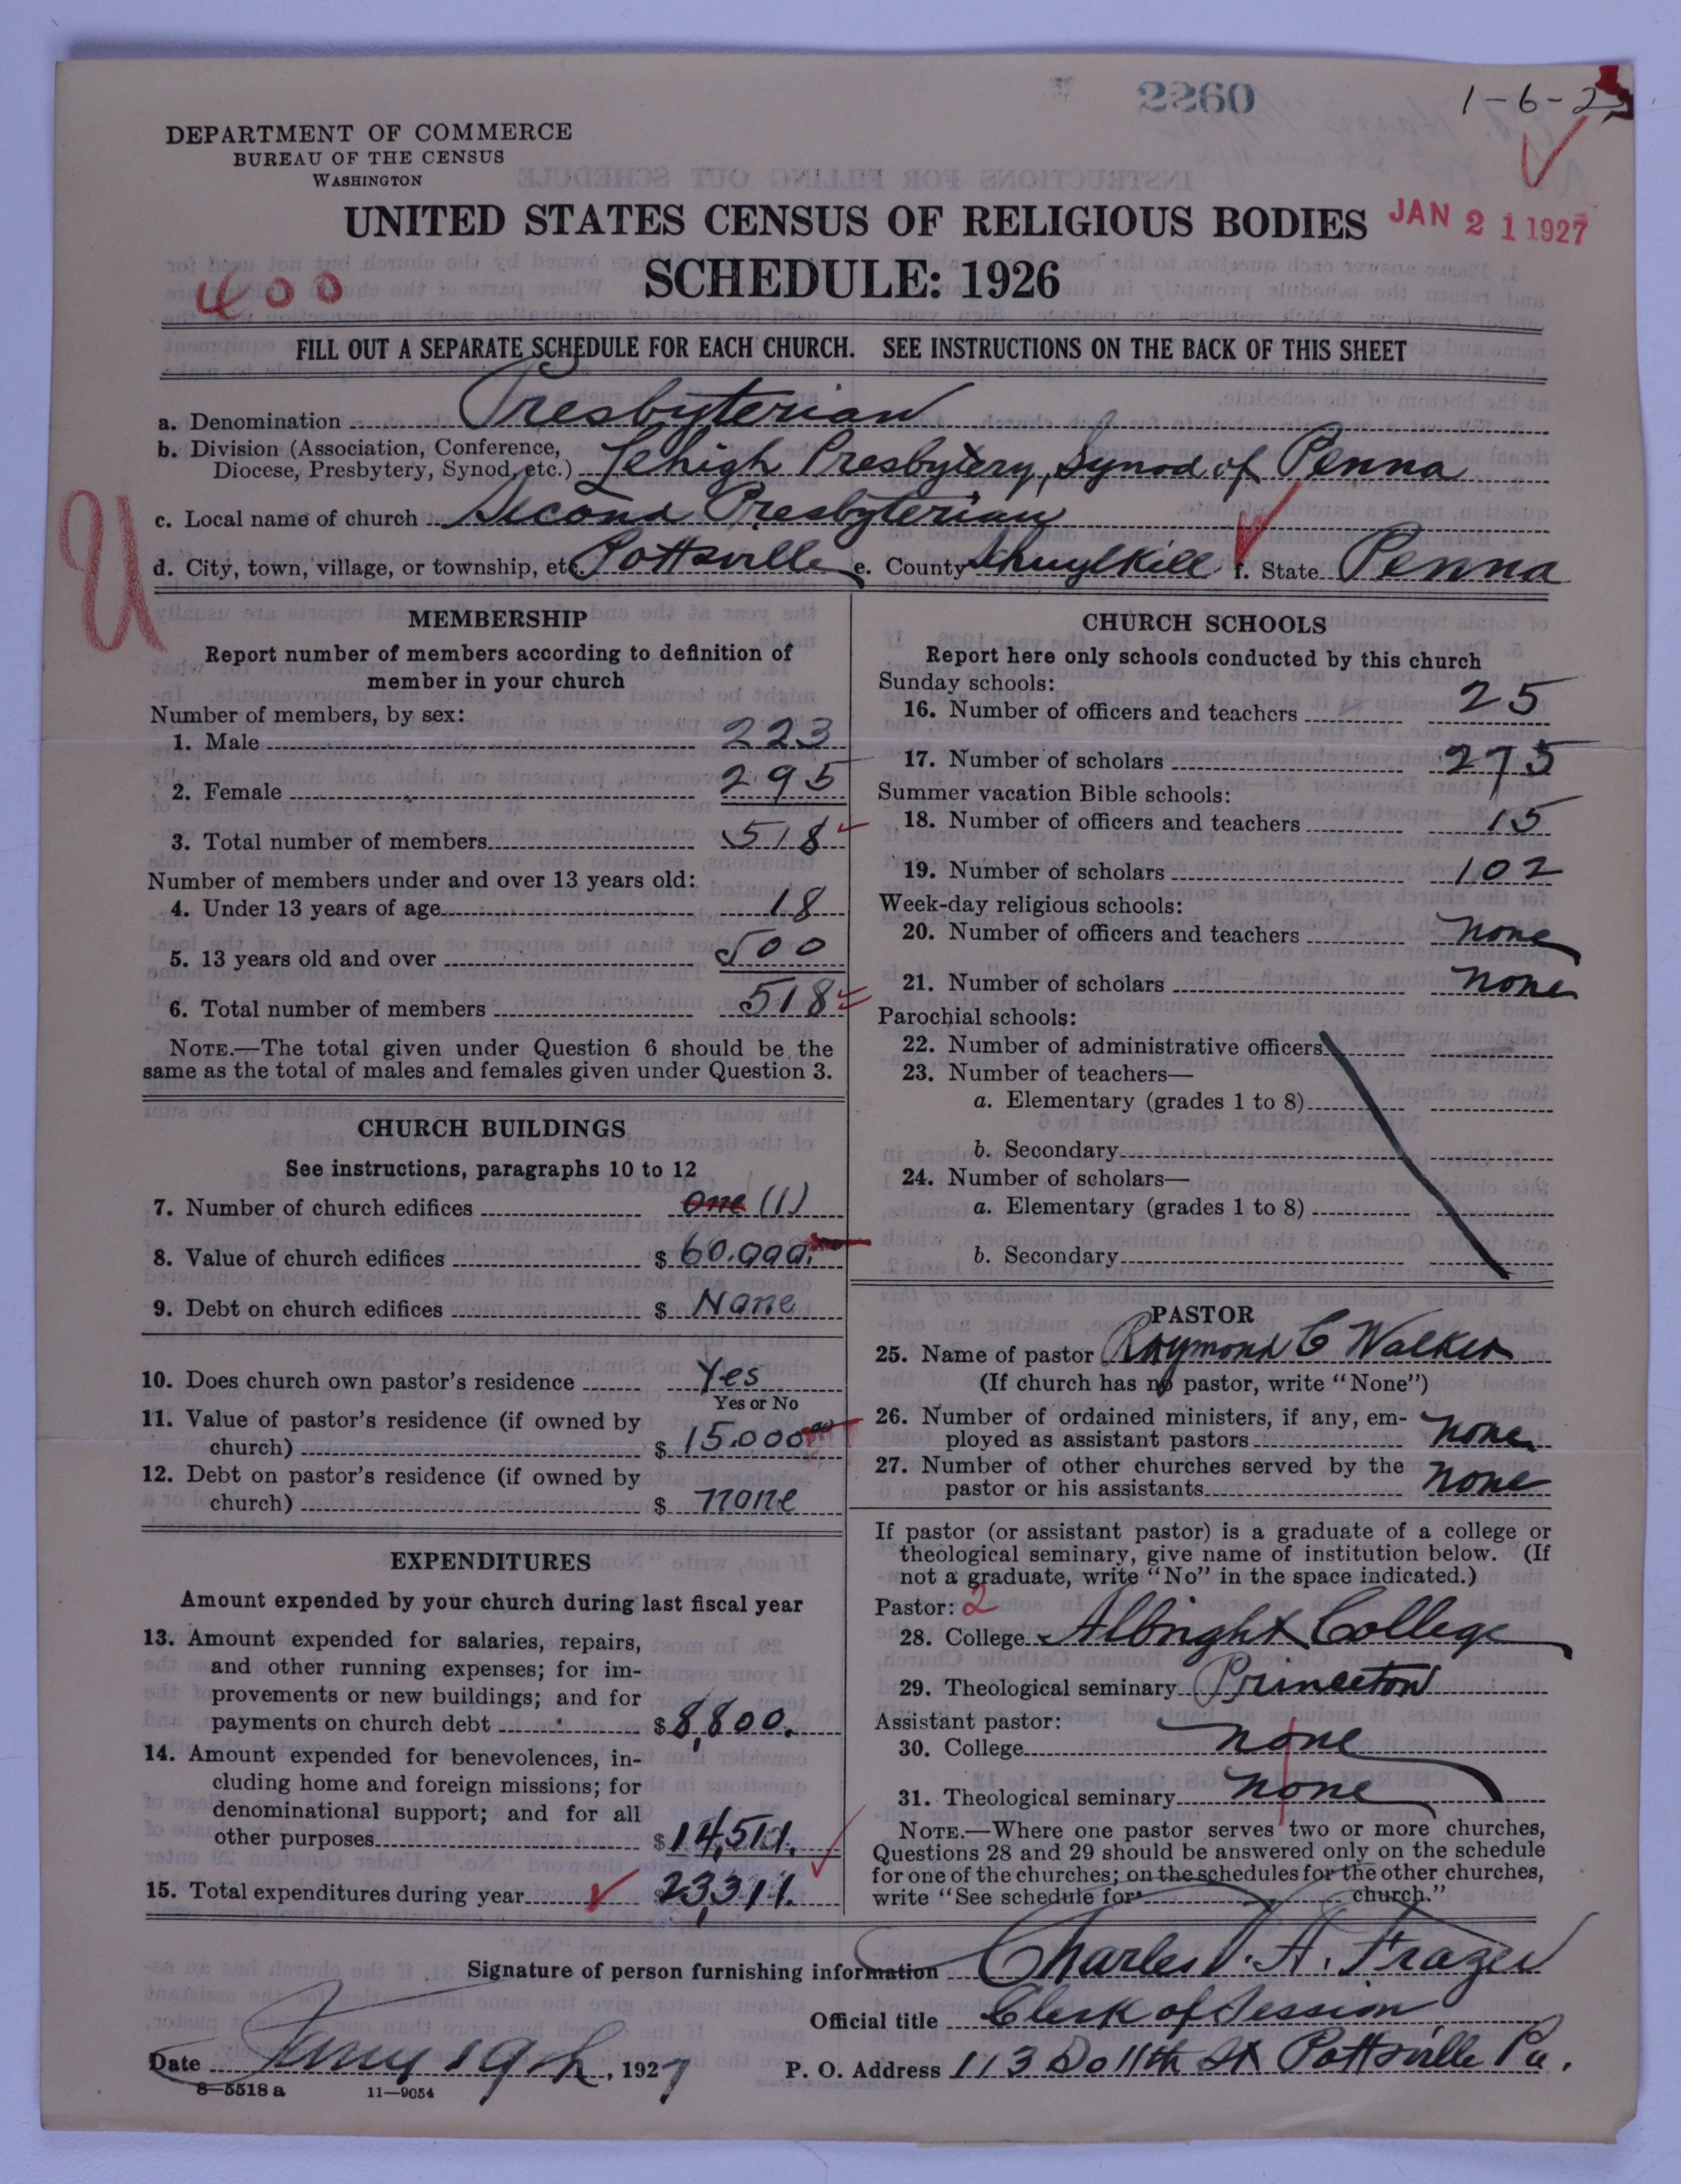 2260
1-6-2
DEPARTMENT OF COMMERCE
BUREAU OF THE CENSUS
WASHINGTON
UNITED STATES CENSUS OF RELIGIOUS BODIES
JAN 21 1927
SCHEDULE: 1926
400
FILL OUT A SEPARATE SCHEDULE FOR EACH CHURCH. SEE INSTRUCTIONS ON THE BACK OF THIS SHEET
a. Denomination Presbyterian
b. Division (Association, Conference,
Diocese, Presbytery, Synod, etc.) Lehigh Presbytery, Synod of Penna
c. Local name of church Second Presbyterian
d. City, town, village, or township, etc. Pottsville e. County Schuylkill f. State Penna
U
MEMBERSHIP
Report number of members according to definition of
member in your church
Number of members, by sex:
1. Male 223
2. Female 295
3. Total number of members 518
Number of members under and over 13 years old:
4. Under 13 years of age 18
5. 13 years old and over 500
6. Total number of members 518
NOTE.—The total given under Question 6 should be the
same as the total of males and females given under Question 3.
CHURCH BUILDINGS
See instructions, paragraphs 10 to 12
7. Number of church edifices One (1)
8. Value of church edifices $ 60.000.
9. Debt on church edifices $ None
10. Does church own pastor's residence Yes
Yes or No
11. Value of pastor's residence (if owned by
church) $ 15.000 00
12. Debt on pastor's residence (if owned by
church) $ none
EXPENDITURES
Amount expended by your church during last fiscal year
13. Amount expended for salaries, repairs,
and other running expenses; for im-
provements or new buildings; and for
payments on church debt $ 8,800.
14. Amount expended for benevolences, in-
cluding home and foreign missions; for
denominational support; and for all
other purposes $ 14,511.
15. Total expenditures during year $ 23,311.
CHURCH SCHOOLS
Report here only schools conducted by this church
Sunday schools:
16. Number of officers and teachers 25
17. Number of scholars 275
Summer vacation Bible schools:
18. Number of officers and teachers 15
19. Number of scholars 102
Week-day religious schools:
20. Number of officers and teachers none
21. Number of scholars none
Parochial schools:
22. Number of administrative officers
23. Number of teachers—
a. Elementary (grades 1 to 8)
b. Secondary
24. Number of scholars—
a. Elementary (grades 1 to 8)
b. Secondary
PASTOR
25. Name of pastor Raymond C Walker
(If church has no pastor, write "None")
26. Number of ordained ministers, if any, em-
ployed as assistant pastors none
27. Number of other churches served by the
pastor or his assistants none
If pastor (or assistant pastor) is a graduate of a college or
theological seminary, give name of institution below. (If
not a graduate, write "No" in the space indicated.)
Pastor: 2
28. College Albright College
29. Theological seminary Princeton
Assistant pastor:
30. College none
31. Theological seminary none
NOTE.—Where one pastor serves two or more churches,
Questions 28 and 29 should be answered only on the schedule
for one of the churches; on the schedules for the other churches,
write "See schedule for church."
Signature of person furnishing information Charles A. Frazer
Official title Clerk of Session
Date Jany 19th, 1927 P. O. Address 113 So 11th St Pottsville Pa.
8—5518 a 11—9054